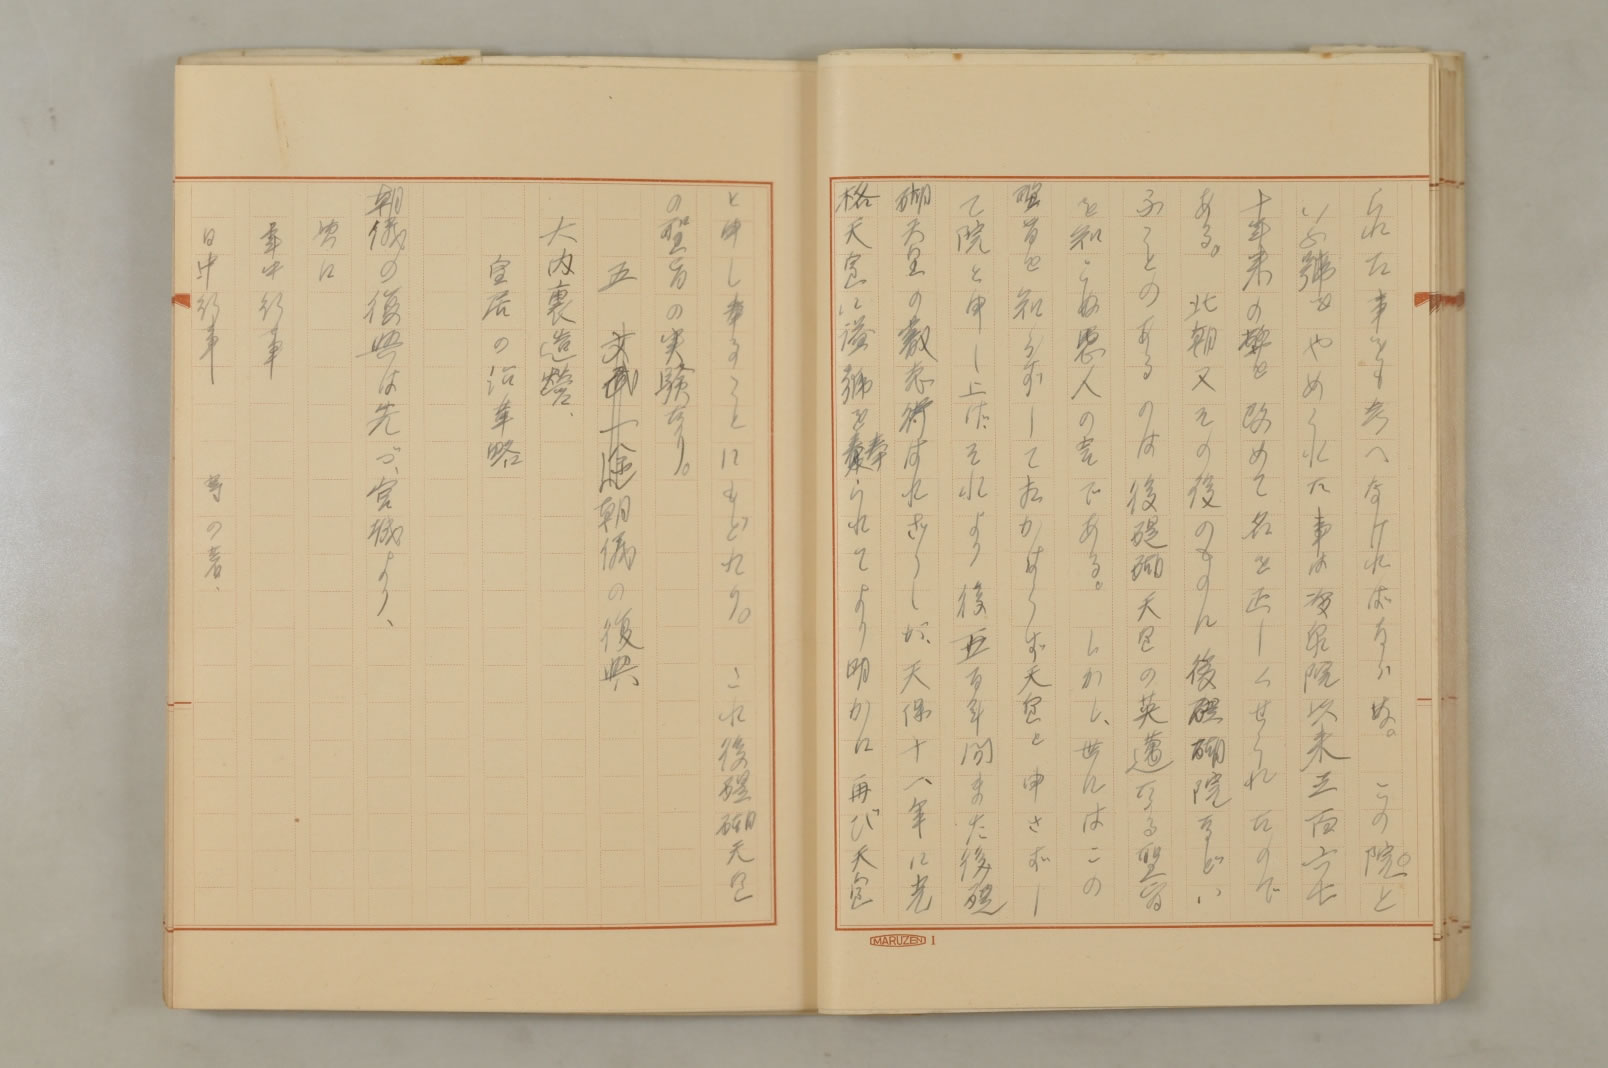 られた事をも考へなければならぬ。この院と
いふ號をやめられた事は冷泉院以来三百六七
十年来の弊を改めて名を正しくせられたので
ある。北朝又その後のものに後醍醐院などい
ふことのあるのは後醍醐天皇の英邁なる聖旨
を知らぬ愚人の言である。しかし、世にはこの
聖旨を知らずしておかはらず天皇と申さずし
て院と申し上げそれより後五百年間また後醍
醐天皇の叡慮はれざりしが、天保十一年に光
格天皇に諡號を奉られてより明かに再び天皇
と申し奉ることにもどれり。これ後醍醐天皇
の聖旨の実験なり。
五 文武一途朝儀の復興
大内裏造營、
皇居の沿革略
朝儀の復興は先づ、宮城より、
次に
年中行事
日中行事 等の著.
MARUZEN 1